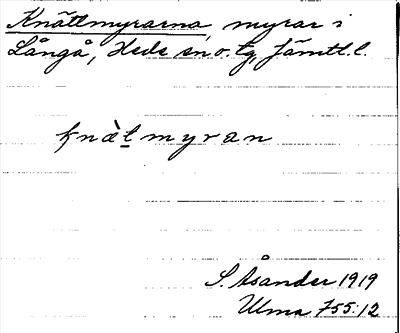 Knättmyrarna, myrar i
Långå, Hede sn o. tg, Jämtl. l.
knæ̀tmyran
S. Åsander 1919
Ulma 755:12